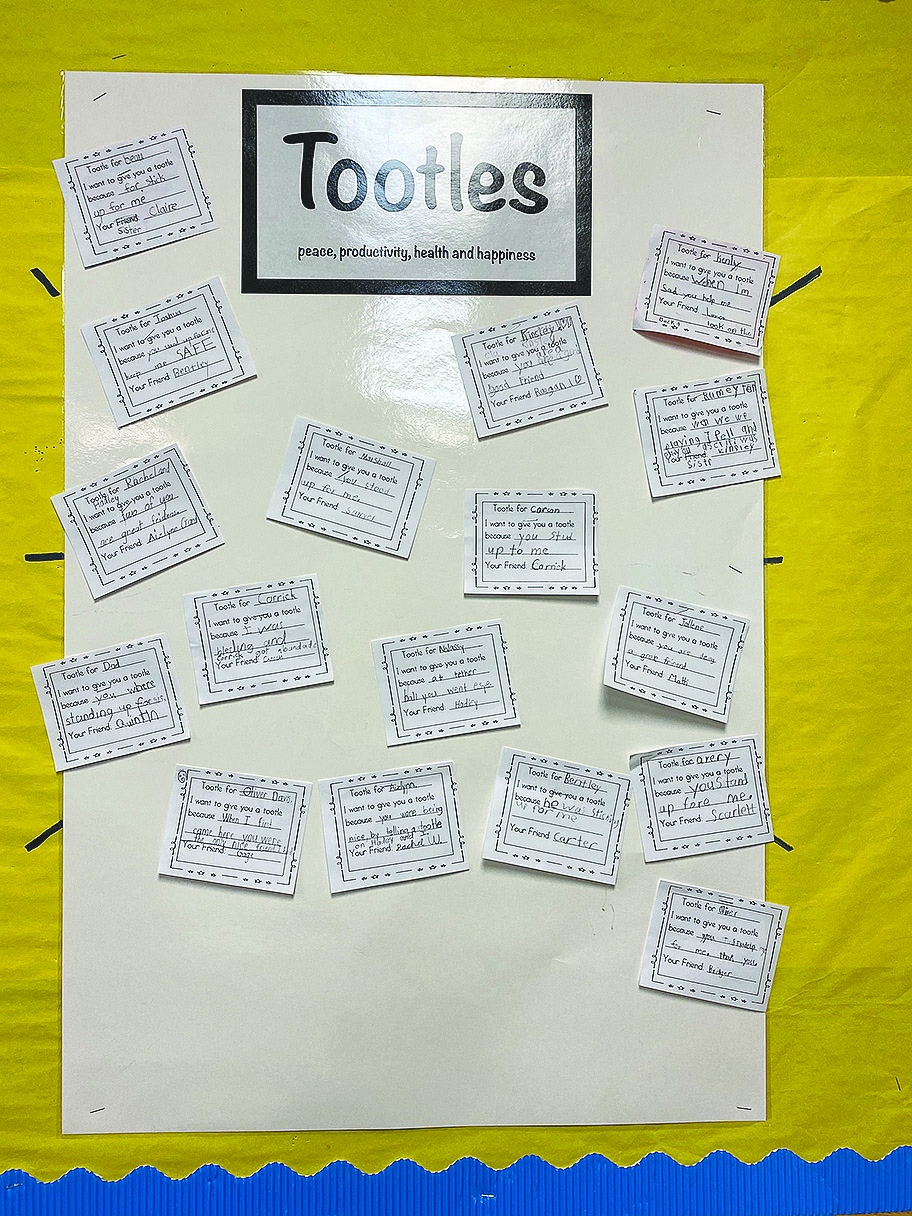 Tootles
peace, productivity, health and happiness
Tootle for
I want to give you a tootle
because for stick
up for me
Your Friend Claire
Sister
Tootle for
I want to give you a tootle
because When I'm
Sad you help me
Your Friend
took on the
Tootle for Joshua
I want to give you a tootle
because you
keep me SAFE
Your Friend Bentley
Tootle for Kinsley
I want to give you a tootle
because you are
Good Friend
Your Friend Raegan
Tootle for
I want to give you a tootle
because we
playing I fell and
Your Friend Kinsley
Tootle for Rachel and
I want to give you a tootle
because two of you
are great
Your Friend
Tootle for Marshall
I want to give you a tootle
because You stood
up for me.
Tootle for Carson
I want to give you a tootle
because you stud
up to me
Your Friend Carrick
Tootle for Carrick
I want to give you a tootle
because I was
and
got
Your Friend
Tootle for Jollene
I want to give you a tootle
because you are
a great friend
Your Friend
Tootle for Dad
I want to give you a tootle
because you where
standing up for us.
Your Friend Quintin
Tootle for
I want to give you a tootle
because at tether
ball you went
Your Friend Hadley
Tootle for Oliver Davis
I want to give you a tootle
because When I first
came here you were
the only nice friend
Your Friend Gage
Tootle for
I want to give you a tootle
because you were being
nice by telling a tootle
on Hadley and I
Your Friend Rachel W
Tootle for Bentley
I want to give you a tootle
because he was
up for me
Your Friend Carter
Tootle for avery
I want to give you a tootle
because you Stand
up fore me.
Your Friend Scarlett
Tootle for Oliver
I want to give you a tootle
because you
for me, thank you
Your Friend Bridger